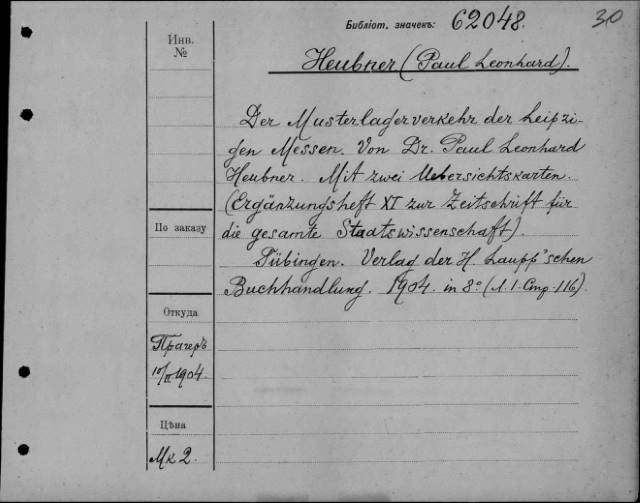 Библіот. значекъ: 62048.
30
Инв.
№
Heubner (Paul Leonhard).
Der Musterlagerverkehr der Leipzi-
gen Messen. Von Dr. Paul Leonhard
Heubner. Mit zwei Uebersichtskarten.
(Ergänzungsheft XI zur Zeitschrift für
die gesamte Staatswissenschaft).
Tübingen. Verlag der H. Laupp'schen
Buchhandlung. 1904. in 8º (Л. I. Стр. 116)
По заказу
Откуда
Прагеръ
10/II 1904.
Цѣна
Мк 2.